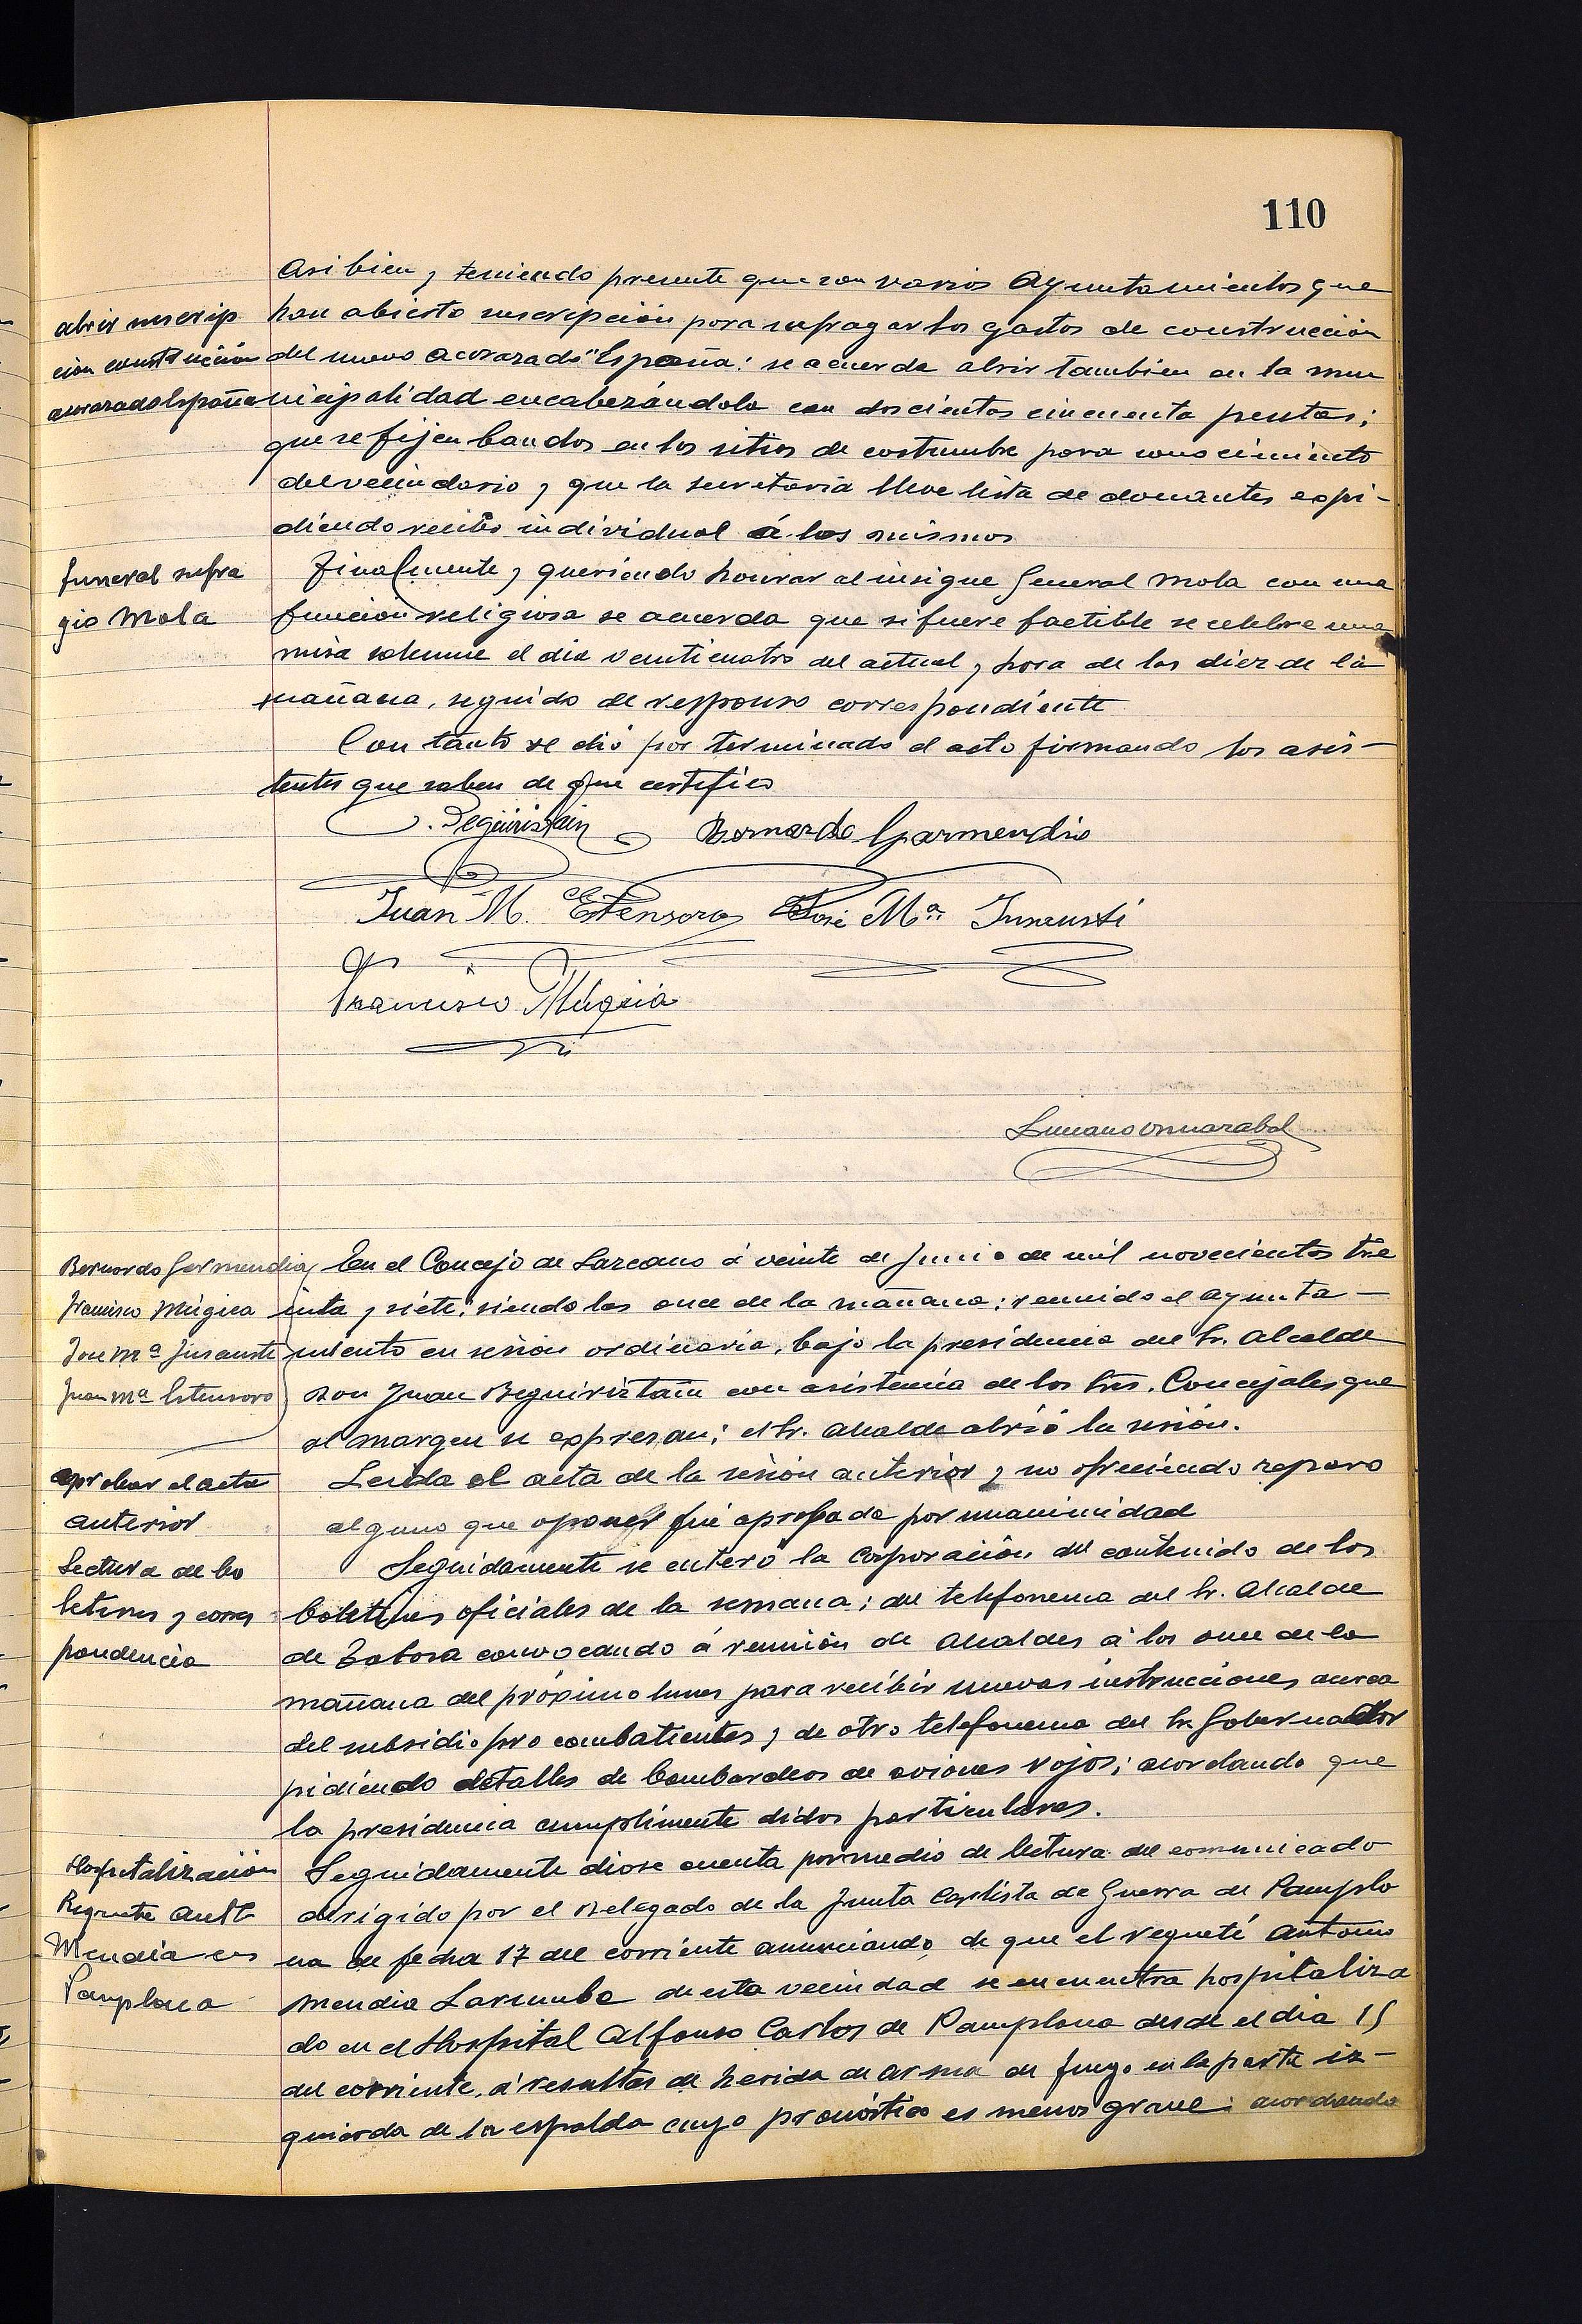 110
Asi bien, teniendo presente que son varios Ayuntamientos que
abrir suscrip
han abierto suscripción para sufragar los gastos de construcción
cion construcción
del nuevo acorazado "España: se acuerda abrir tambien en la mu
acorazado España
nicipalidad encabezándola con doscientas cincuenta pesetas;
que se fijen bandos en los sitios de costumbre para conocimiento
del vecindario y que la secretaria lleve lista de donantes expi-
diendo recibo individual á los mismos
funeral sufra
gio Mola
Finalmente, queriendo honrar al insigne General Mola con una
funcion religiosa se acuerda que si fuere factible se celebre una
misa solemne el dia veinticuatro del actual y hora de las diez de la
mañana, seguido de responso correspondiente
Con tanto se dió por terminado el acto firmando los asis-
tentes que saben de que certifico
J. Beguiristain
Bernardo Garmendia
Juan M. Estensoro
José Mª Insausti
Francisco Múgica
Luciano
Bernardo Garmendia
Francisco Múgica
Jose Mª Insausti
Juan Mª Estensoro
En el Concejo de Lazcano á veinte de Junio de mil novecientos tre
inta y siete; siendo las once de la mañana; reunido el ayunta-
miento en sesión ordinaria, bajo la presidencia del Sr. Alcalde
Don Juan Beguiriztain con asistencia de los Sres. Concejales que
al margen se expresan; el Sr. Alcalde abrió la sesión.
aprobar el acta
anterior
Leida el acta de la sesión anterior y no ofreciendo reparo
alguno que oponer fué aprobada por unanimidad
Lectura de bo
letines y corres
pondencia
Seguidamente se enteró la Corporación del contenido de los
boletines oficiales de la semana; del telefonema del Sr. Alcalde
de Tolosa convocando á reunión de Alcaldes á las once de la
mañana del próximo lunes para recibir nuevas instrucciones acerca
del subsidio pro combatientes y de otro telefonema del Sr. Gobernador
pidiendo detalles de bombardeos de aviones rojos; acordando que
la presidencia cumplimente didos particulares.
Hospitalización
Requeté Antº
Mendia en
Pamplona
Seguidamente diose cuenta por medio de lectura del comunicado
dirigido por el Delegado de la Junta Carlista de Guerra de Pamplo
na de fecha 17 del corriente anunciando de que el requeté Antonio
Mendia Larumbe de esta vecindad se encuentra hospitaliza
do en el Hospital Alfonso Carlos de Pamplona desde el dia 15
del corriente, á resultas de herida de arma de fuego en la parte iz-
quierda de la espalda cuyo pronóstico es menos grave: acordando